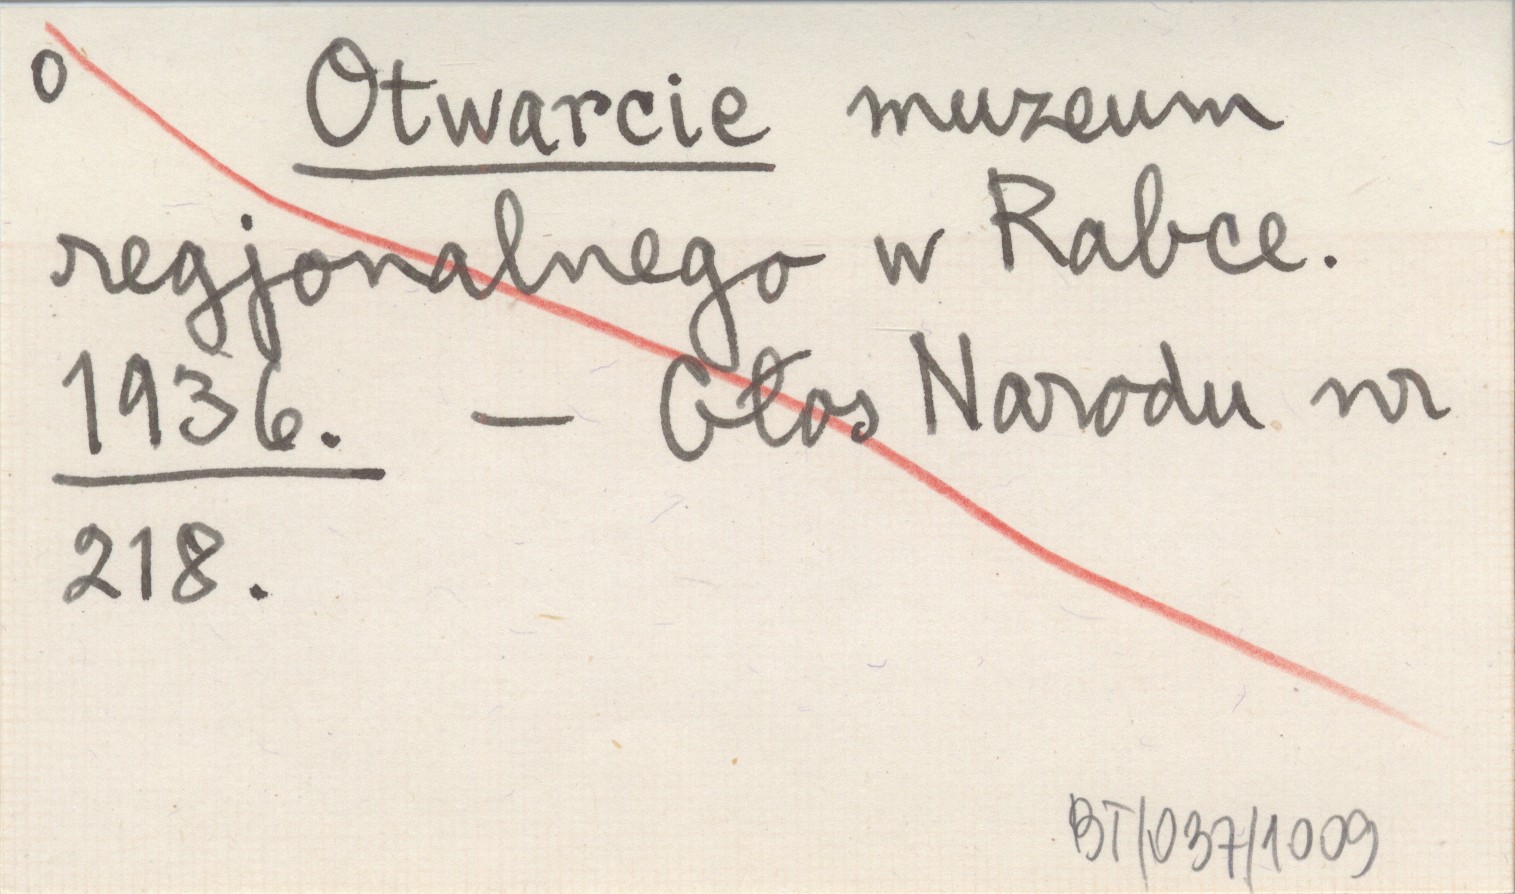 0
Otwarcie muzeum
regjonalnego w Rabce.
1936. — Głos Narodu nr
218.
BT/037/1009